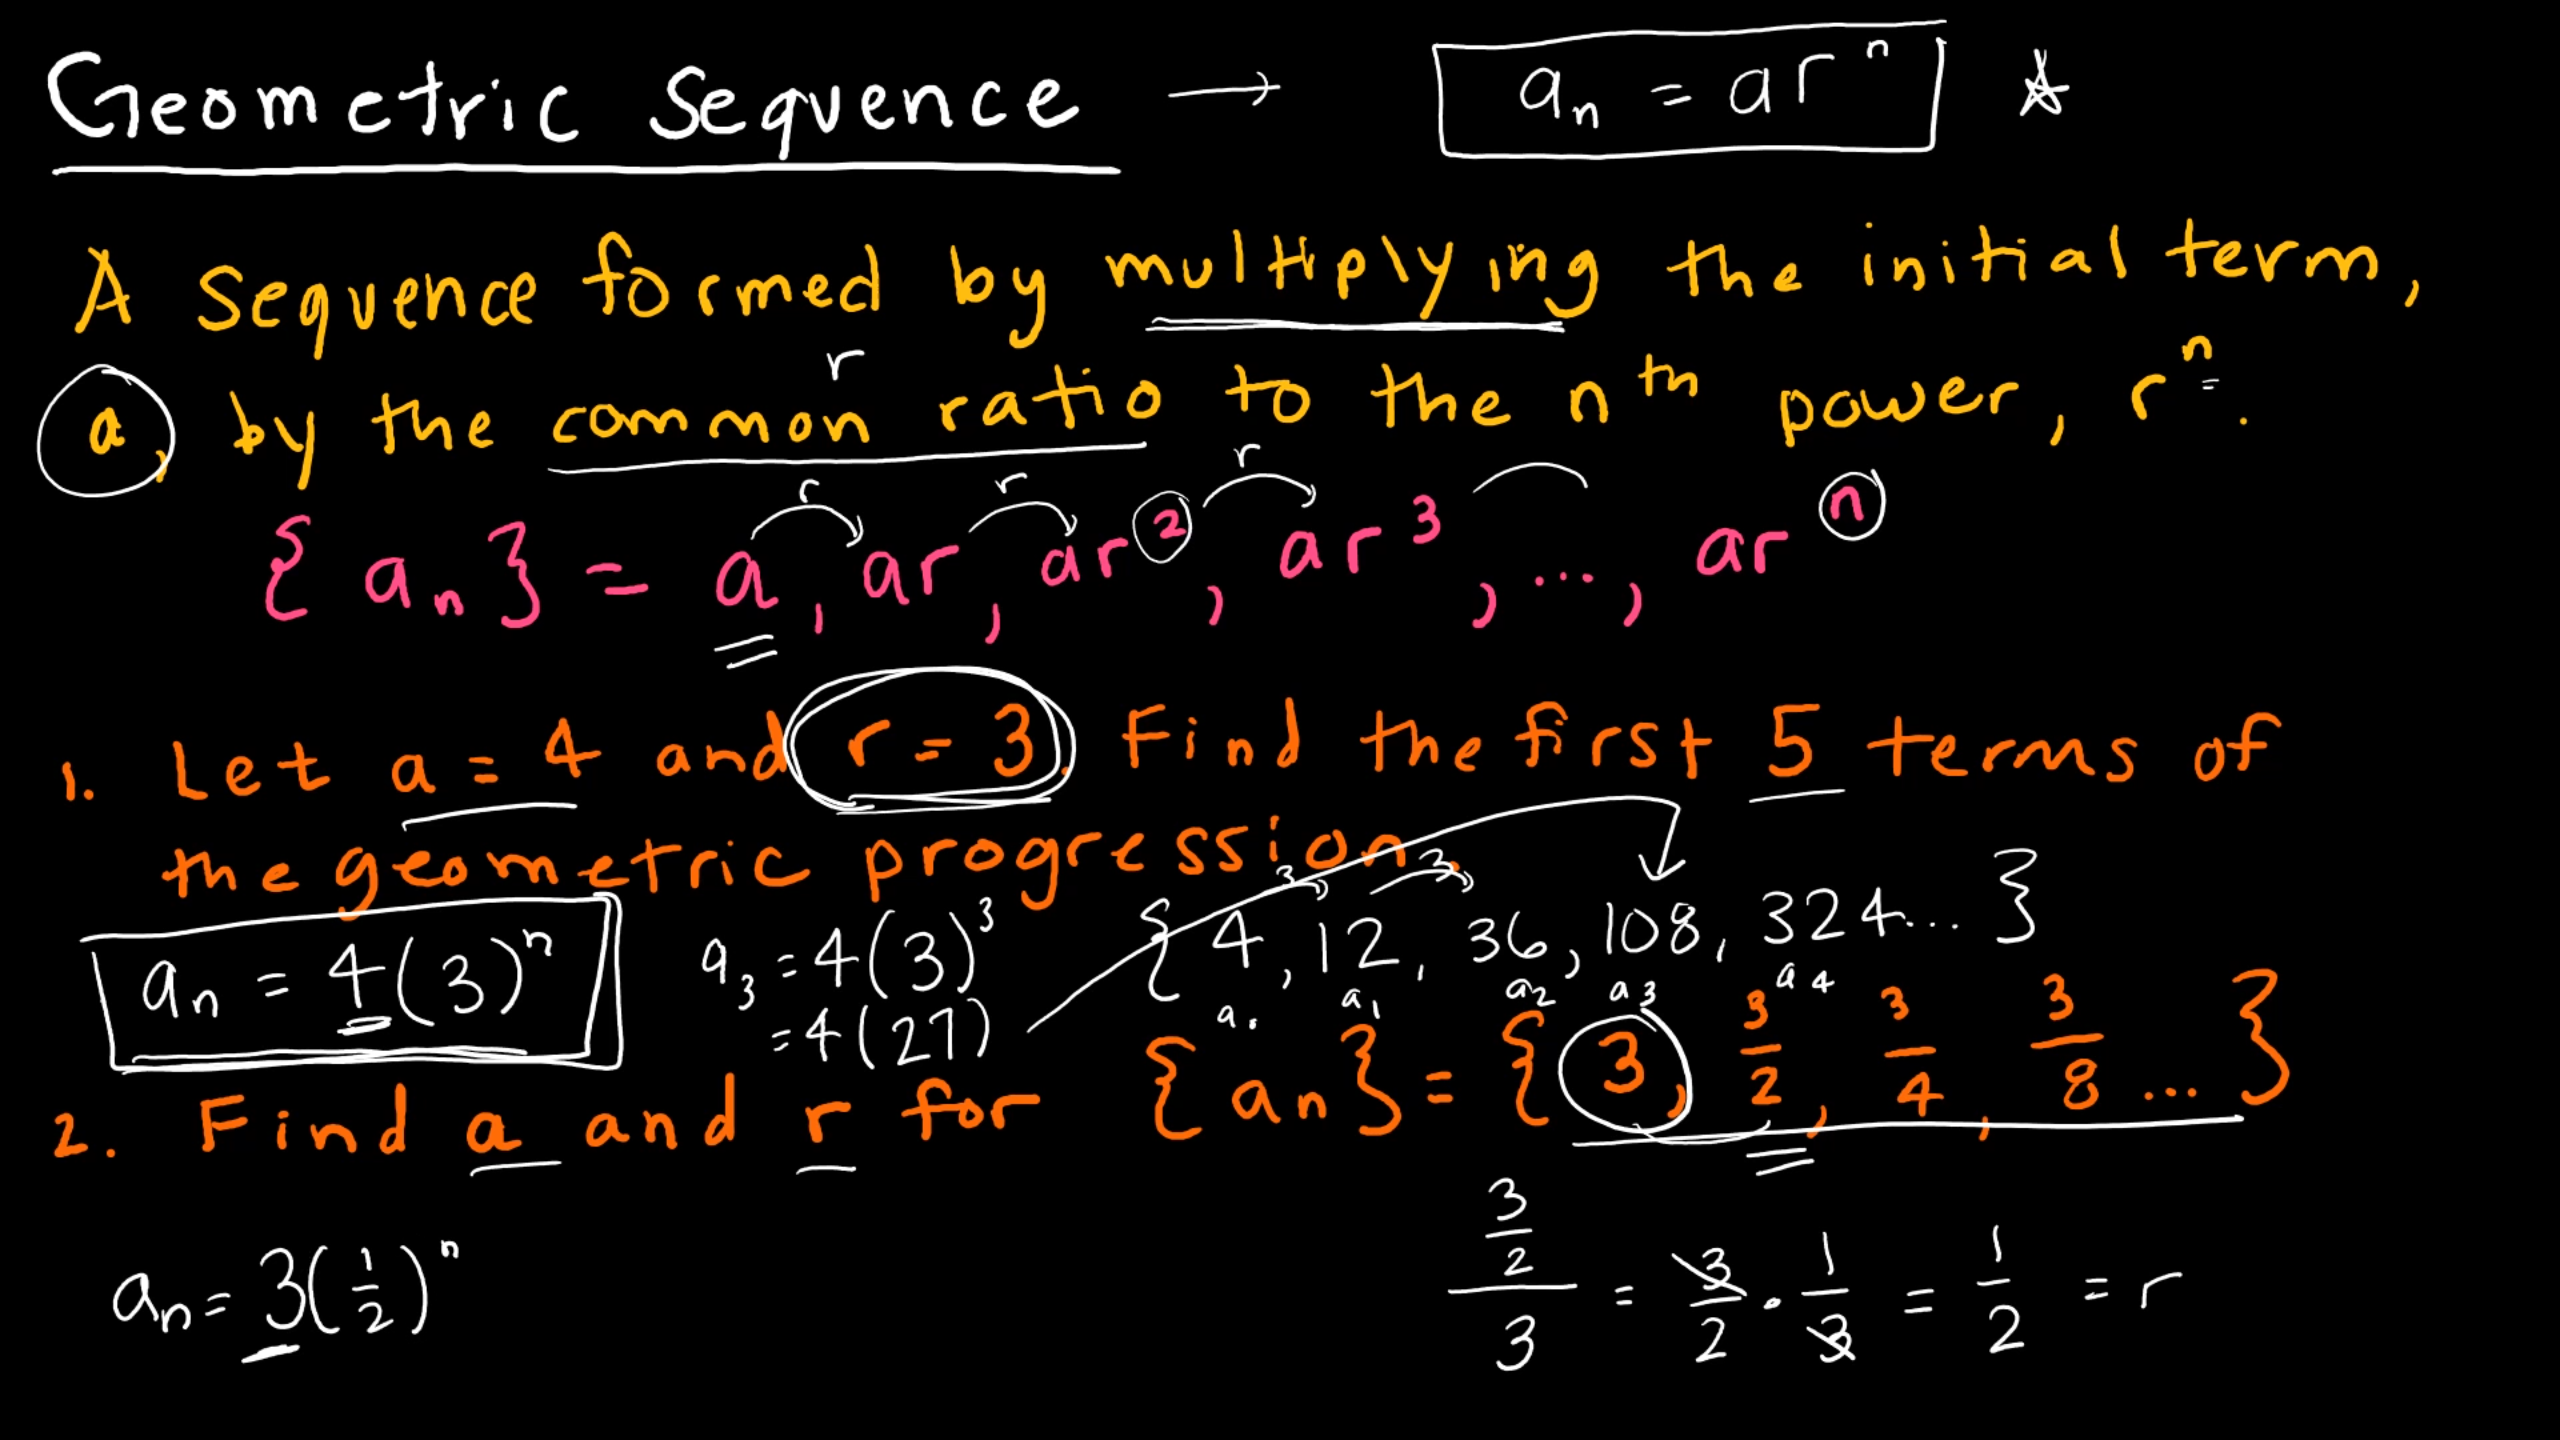 Geometric Sequence → aₙ = arⁿ ☆
A sequence formed by multiplying the initial term,
r
a, by the common ratio to the nᵗʰ power, rⁿ.
r r r
{aₙ} = a, ar, ar², ar³, ..., arⁿ
1. Let a = 4 and r = 3. Find the first 5 terms of
the geometric progression.
3 3
aₙ = 4(3)ⁿ
a₃ = 4(3)³
= 4(27)
{4, 12, 36, 108, 324... }
a₀ a₁ a₂ a₃ a₄
2. Find a and r for {aₙ} = {3, 3/2, 3/4, 3/8 ... }
aₙ = 3(1/2)ⁿ
(3/2)/3 = 3/2 · 1/3 = 1/2 = r